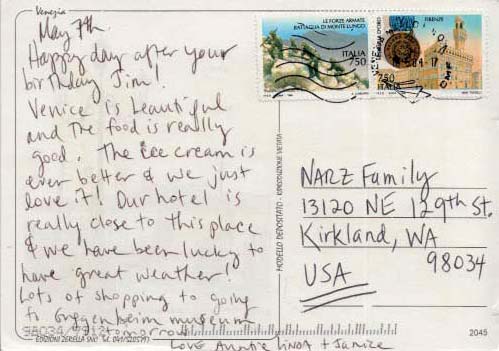 Venezia
May 7th
Happy day after your
birthday Jim!
Venice is beautiful
and the food is really
good. The ice cream is
even better & we just
love it! Our hotel is
really close to this place
& we have been lucky to
have great weather!
Lots of shopping to going
to Guggenheim museum
tomorrow
Love Auntie Linda + Janice
LE FORZE ARMATE
BATTAGLIA DI MONTE LUNGO
ITALIA
750
FIRENZE
ITALIA
750
NARZ Family
13120 NE 129th St.
Kirkland, WA
98034
USA
MODELLO DEPOSITATO - RIPRODUZIONE VIETATA
EDIZIONI ZERELLA SNC
2045